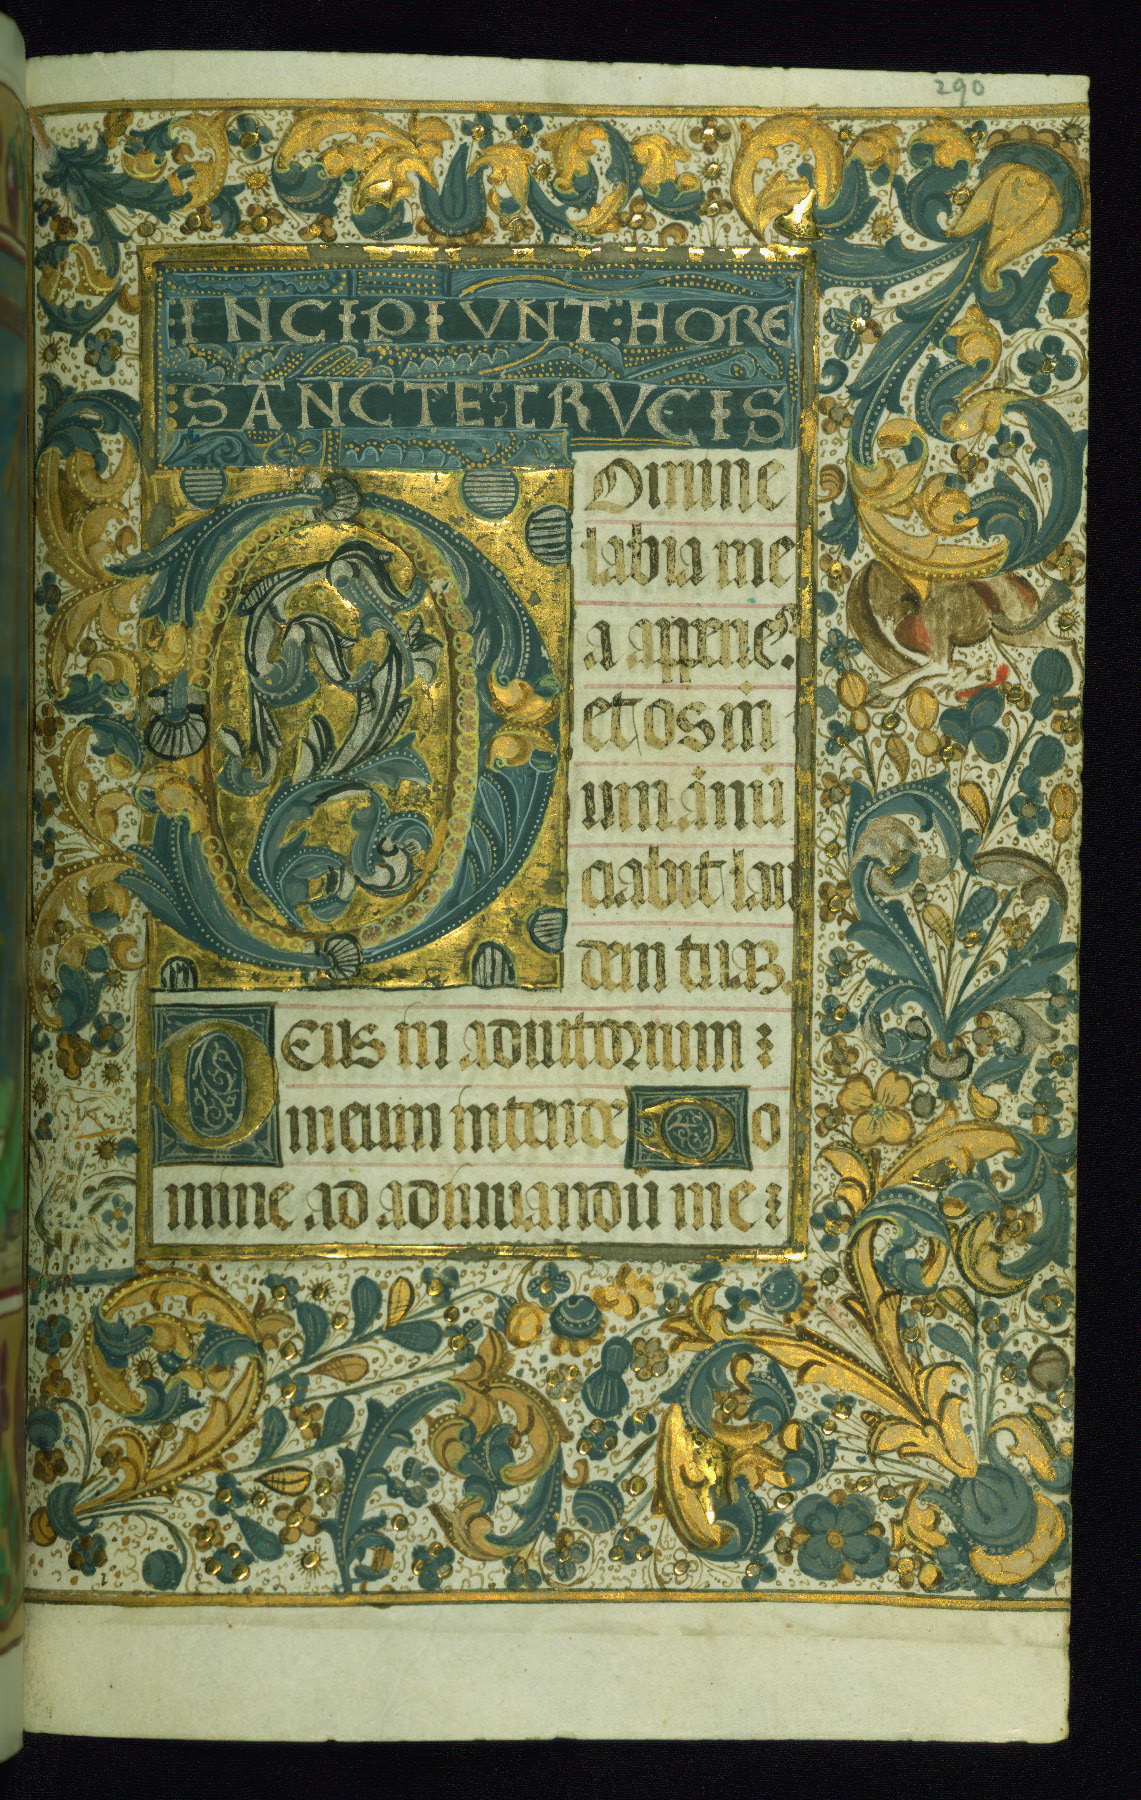 290
INCIPIVNT: HORE
:SANCTE: CRVCIS
DOmine
labia me
a apperies
et os m
um anū
ciabit lau
dem tuaz.
DEus in adiutorium :
meum intende Do
mine ad adiuuandū me :